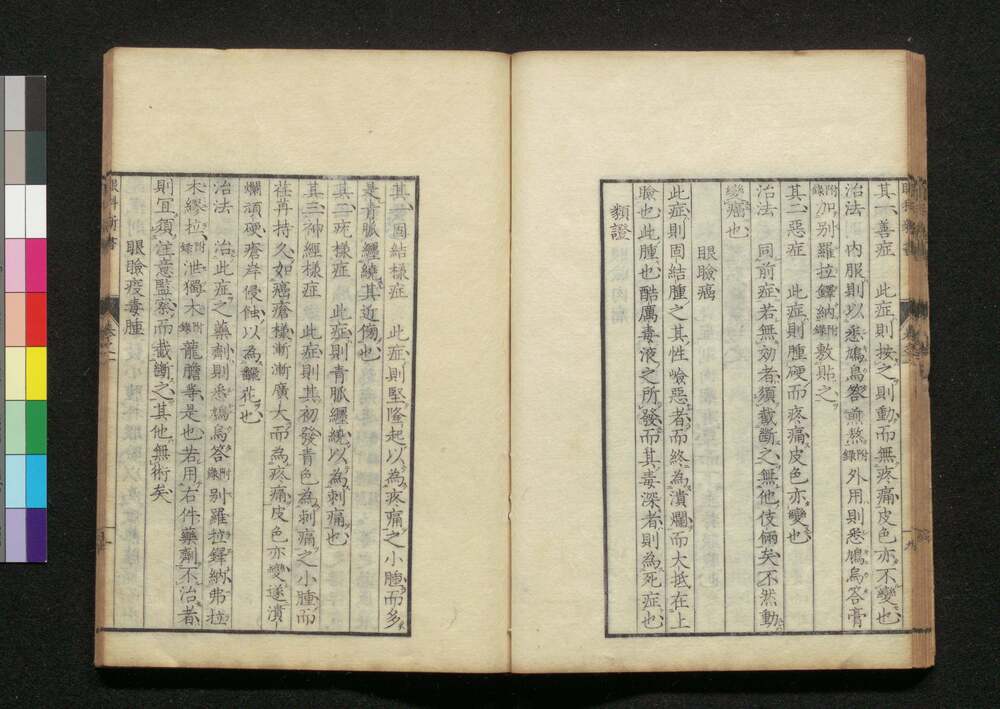 其一善症　此症則按之則動而無疼痛皮色亦不變也
治法　内服則以悉鳩烏答煎熬附録外用則悉鳩烏答膏
附録加別羅拉鐸納附録敷貼之
其二惡症　此症則腫硬而疼痛皮色亦變也
治法　同前症若無効者須截斷之無他伎倆矣不然動
變癌也
眼瞼癌
此症則固結腫之其性嶮惡者而終為潰爛而大抵在上
瞼也此腫也酷厲毒液之所發而其毒深者則為死症也
類證
其一固結様症　此症則堅隆起以為疼痛之小腫而多
是青脈纒繞其近傍也
其二疣様症　此症則青脈纒繞以為刺痛也
其三神經様症　此症則其初發青色為刺痛之小腫而
荏苒持久如癌瘡様漸漸廣大而為疼痛皮色亦變遂潰
爛頑硬瘡岸侵蝕以為飜花也
治法　治此症之藥劑則悉鳩烏答附録別羅拉鐸納弗拉
木繆拉附録泄獨木附録龍膽等是也若用右件藥劑不治者
則宜須注意監察而截斷之其他無術矣
眼瞼疫毒腫
眼科新書